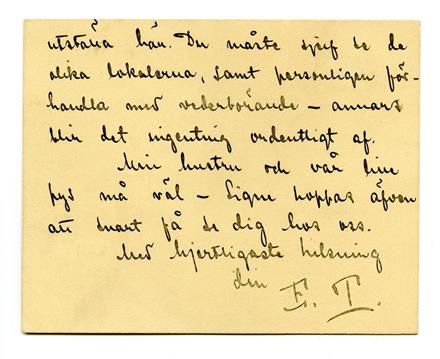 utställa här. Du måste sjelf se de
olika lokalerna, samt personligen för-
handla med vederbörande – annars
blir det ingenting ordentligt af.
Min hustru och vår lille
pys må väl – Signe hoppas äfven
att snart få se dig hos oss.
Med hjertligaste helsning
din
E. T.